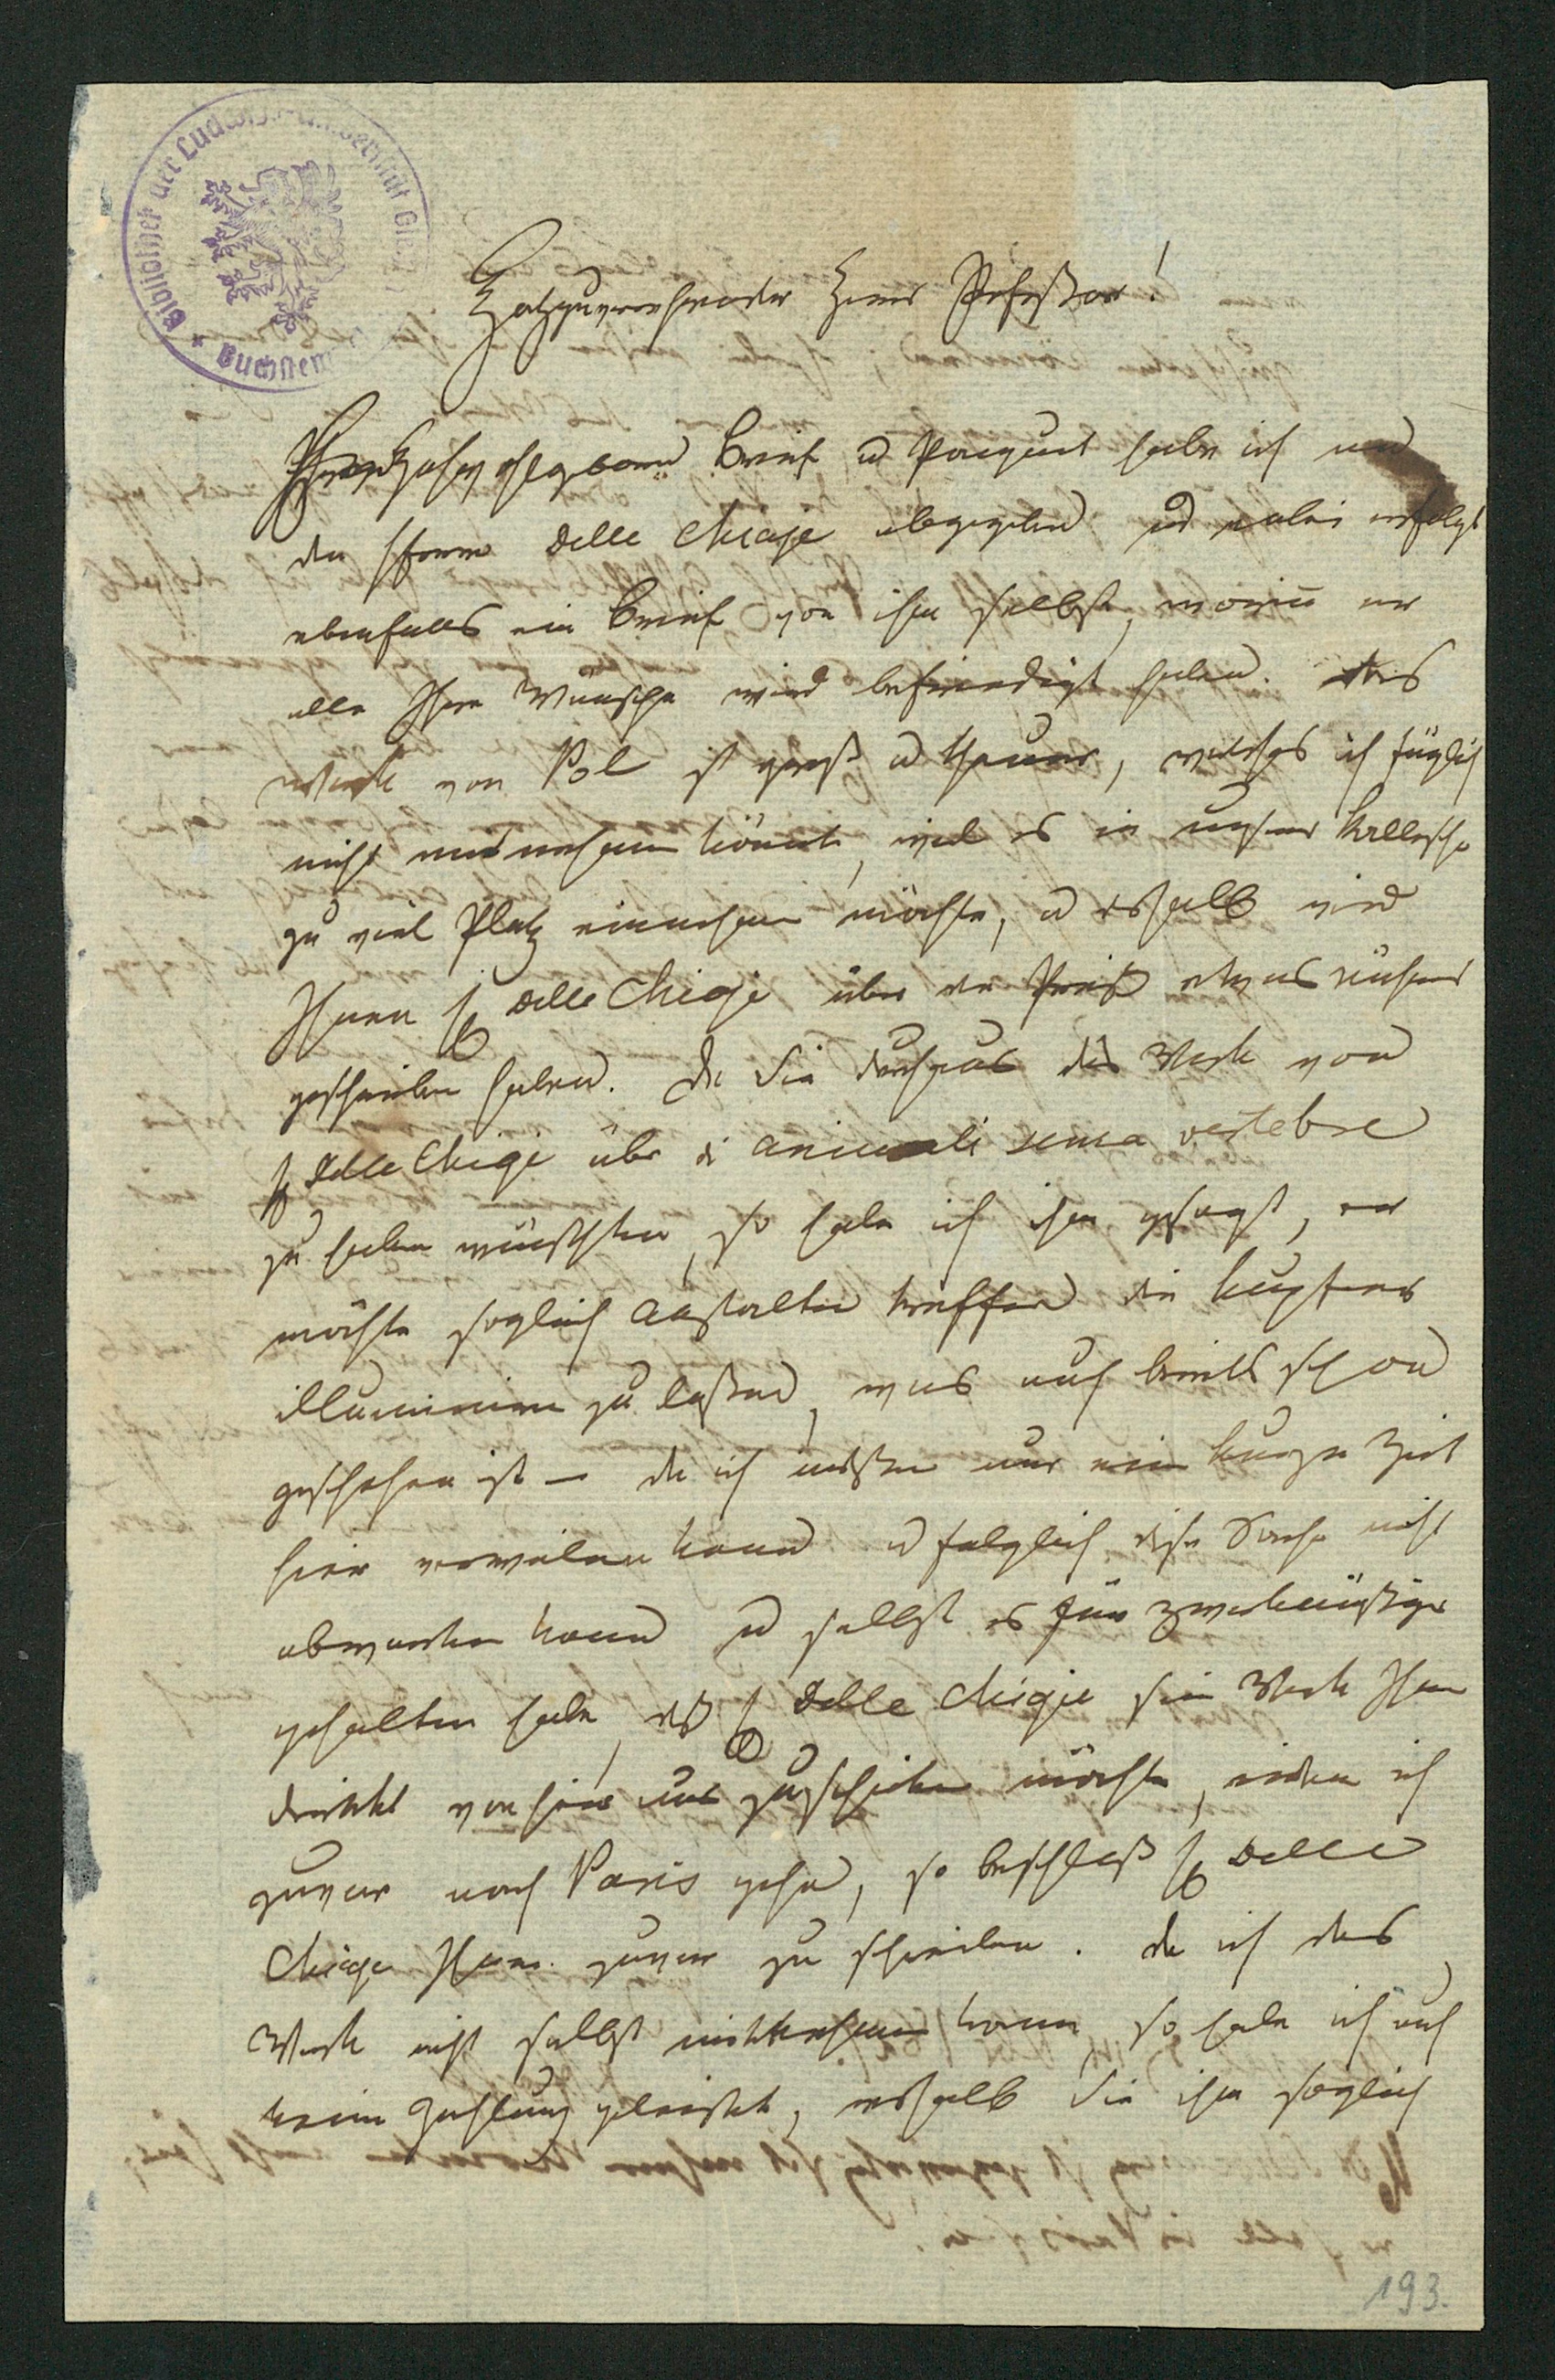 Bibliothek der Ludwigs-Universität Gießen
Hochzuverehrender Herr Professor!
Hochwohlgeboren Brief u Paquet habe ich und
dem Herrn Delle Chiaje abgegeben und erfolgt
ebenfalls ein Brief von ihm selbst, worin er
alle Ihre Wünsche wird befriedigt haben. Das
Werk von Poli ist groß u theuer, welches ich füglich
nicht mitnehmen könnte, weil es in unserer Kallesche
zu viel Platz einnehmen möchte, u deshalb wird
Ihnen H Delle Chiaje über den Preiß etwas näheres
geschrieben haben. Da Sie durchaus das Werk von
H Delle Chiaje über di animali senza vertebre
zu haben wünschten, so habe ich ihm gesagt, er
möchte sogleich Anstalten treffen die Kupfer
illuminiren zu laßen, was auch bereits schon
geschehen ist – da ich indeßen nur eine kurze Zeit
hier verweilen kann u folglich diese Sache nicht
abwarten kann u selbst es für zweckmäßiger
gehalten habe, daß H Delle Chiaje sein Werk Ihnen
direkt von hier aus zuschicken möchte, indem ich
zuvor nach Paris gehe, so beschloß H Delle
Chiaje Ihnen zuvor zu schreiben. Da ich das
Werk nicht selbst mitnehmen kann, so habe ich auch
keine Zahlung geleistet, weshalb Sie ihm sogleich
193.